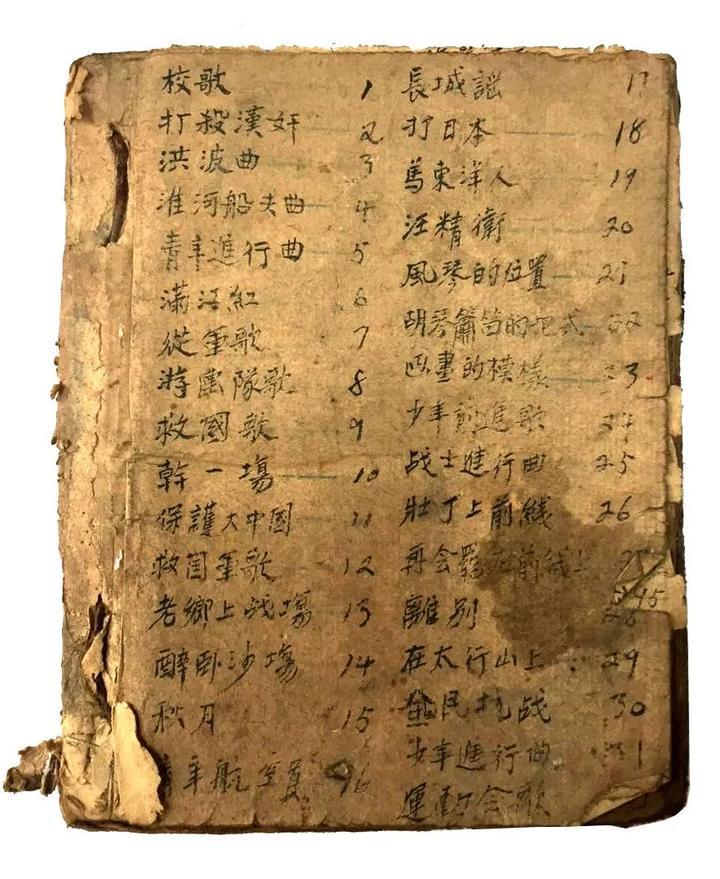 校歌 1
打殺漢奸 2
洪波曲 3
淮河船夫曲 4
青年進行曲 5
滿江紅 6
從軍歌 7
游擊隊歌 8
救國歌 9
幹一場 10
保護大中國 11
救国軍歌 12
老鄉上战場 13
醉卧沙場 14
秋月 15
青年航空員 16
長城謡 17
打日本 18
罵東洋人 19
汪精衛 20
風琴的位置 21
胡琴簫笛的 式 22
画畫的模樣 23
少年前進歌 24
战士進行曲 25
壯丁上前綫 26
再会 在前綫上
離别 28
在太行山上 29
全民抗战 30
女年進行曲 31
運動会歌